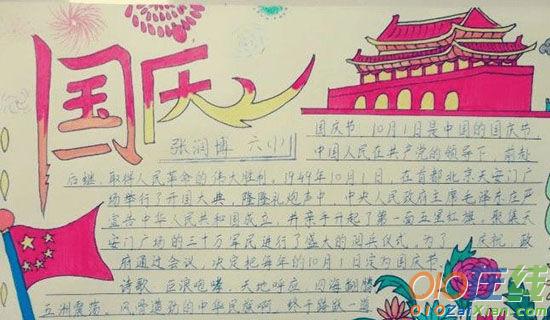 国庆
张润博 六(1)
国庆节 10月1日是中国的国庆节,
中国人民在共产党的领导下,前赴
后继,取得人民革命的伟大胜利,1949年10月1日,在首都北京天安门广
场举行了开国大典,隆隆礼炮声中,中央人民政府主席毛泽东庄严
宣告中华人民共和国成立,并亲手升起了第一面五星红旗,聚集天
安门广场的三十万军民进行了盛大的阅兵仪式,为了 庆祝,政
府通过会议,决定把每年的10月1日定为国庆节,
诗歌 巨浪咆哮,天地呼应 四海翻腾
五洲震荡,风雷激动的中华民族啊 终于踏
010在线
010ZaiXian.com